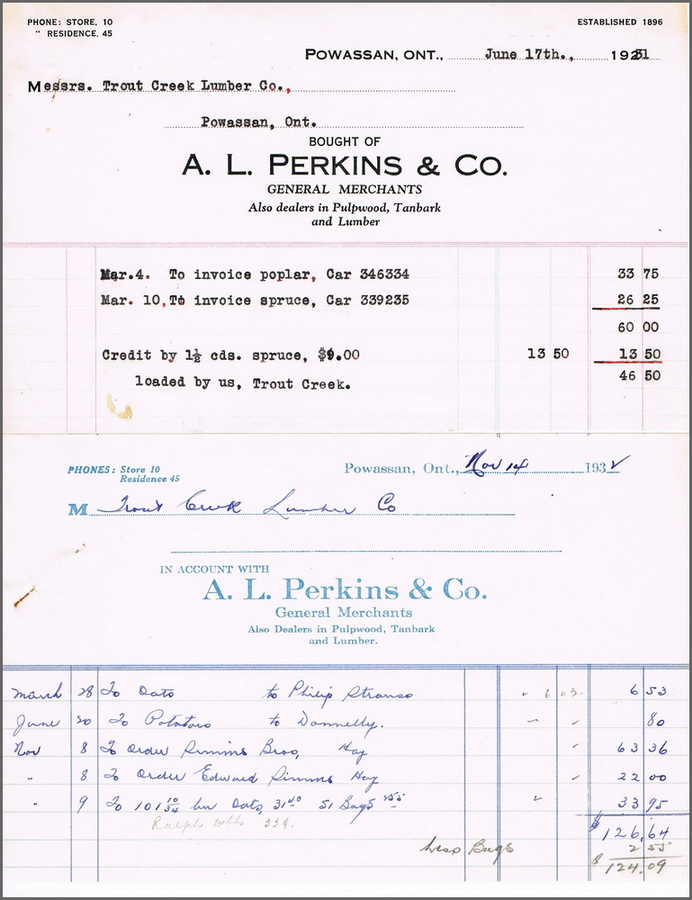 PHONE: STORE, 10 ESTABLISHED 1896
" RESIDENCE, 45
POWASSAN, ONT., June 17th., 1931
Messrs. Trout Creek Lumber Co.,
Powassan, Ont.
BOUGHT OF
A. L. PERKINS & CO.
GENERAL MERCHANTS
Also dealers in Pulpwood, Tanbark
and Lumber
Mar.4. To invoice poplar, Car 346334 33 75
Mar. 10, To invoice spruce, Car 339235 26 25
60 00
Credit by 1½ cds. spruce, $9.00 13 50 13 50
loaded by us, Trout Creek. 46 50
PHONES: Store 10
Residence 45
Powassan, Ont., Nov 14 1932
M Trout Creek Lumber Co
IN ACCOUNT WITH
A. L. Perkins & Co.
General Merchants
Also Dealers in Pulpwood, Tanbark
and Lumber.
March 28 To Oats to Philip Strauss 6 53
June 20 To Potatoes to Donnelly. 80
Nov 8 To Order Rimms Bros, Hay 63 36
" 8 To Order Edward Rimms Hay 22 00
" 9 To 101 10/34 bu Oats, 31.40 51 Bags 2.55 33 95
Ralph 33¢.
$126.64
Less Bags 2 55
$124.09